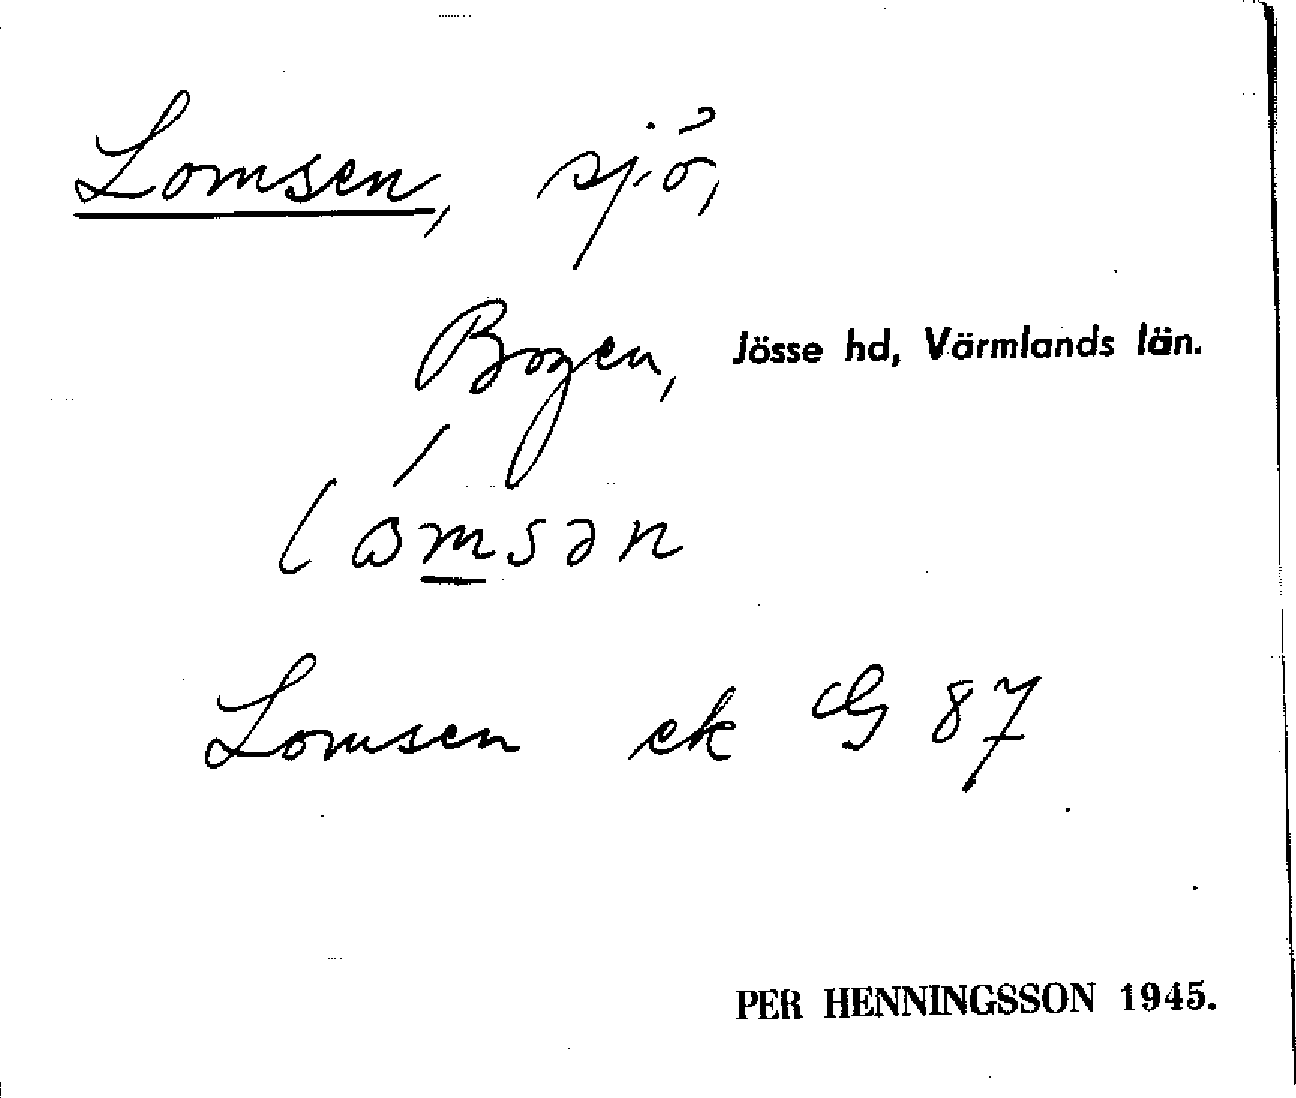 Lomsen, sjö,
Bogen, Jösse hd, Värmlands län.
lómsən
Lomsen ek G 87
PER HENNINGSSON 1945.